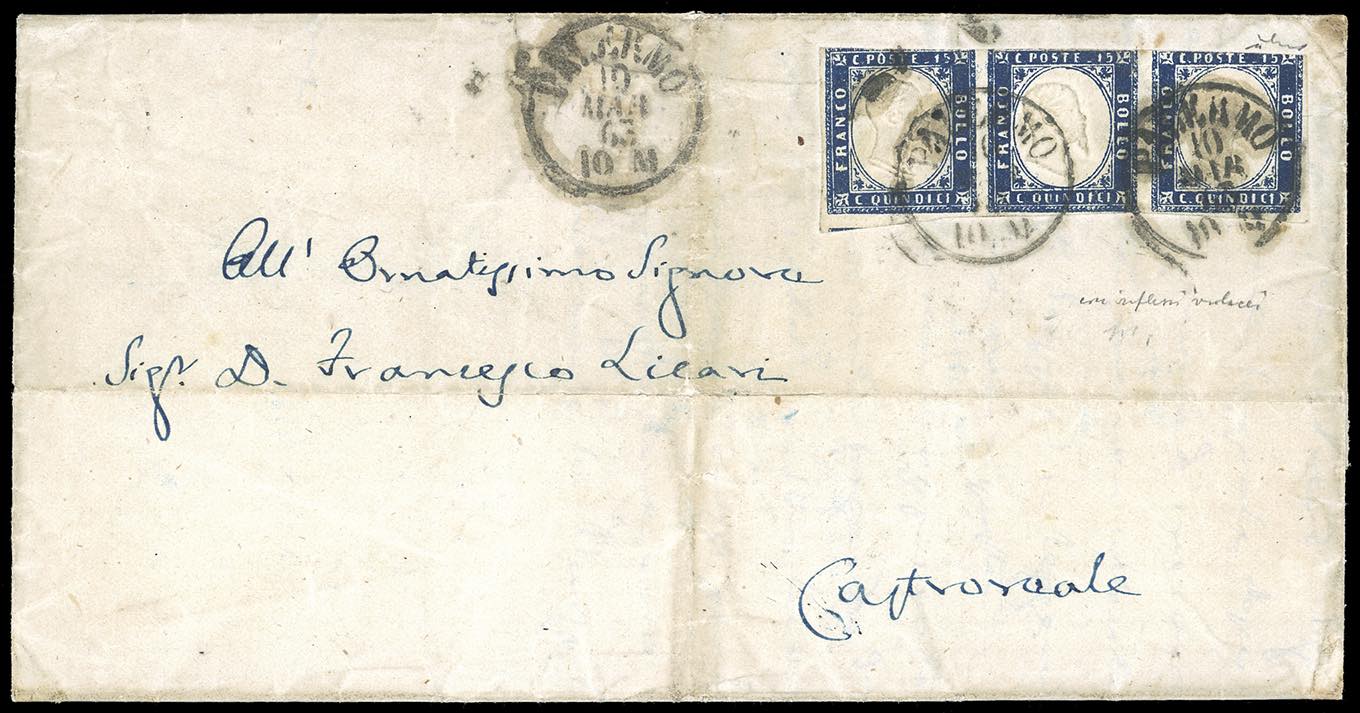 PALERMO
19
MAR
63
10 M
C. POSTE 15
FRANCO
BOLLO
C QUINDICI
C. POSTE 15
FRANCO
BOLLO
C QUINDICI
C. POSTE 15
FRANCO
BOLLO
C QUINDICI
PALERMO
10 M
PALERMO
19
MAR
10 M
All' Ornatissimo Signore
con riflessi violacei
Sigr. D. Francesco Licari
Castroreale